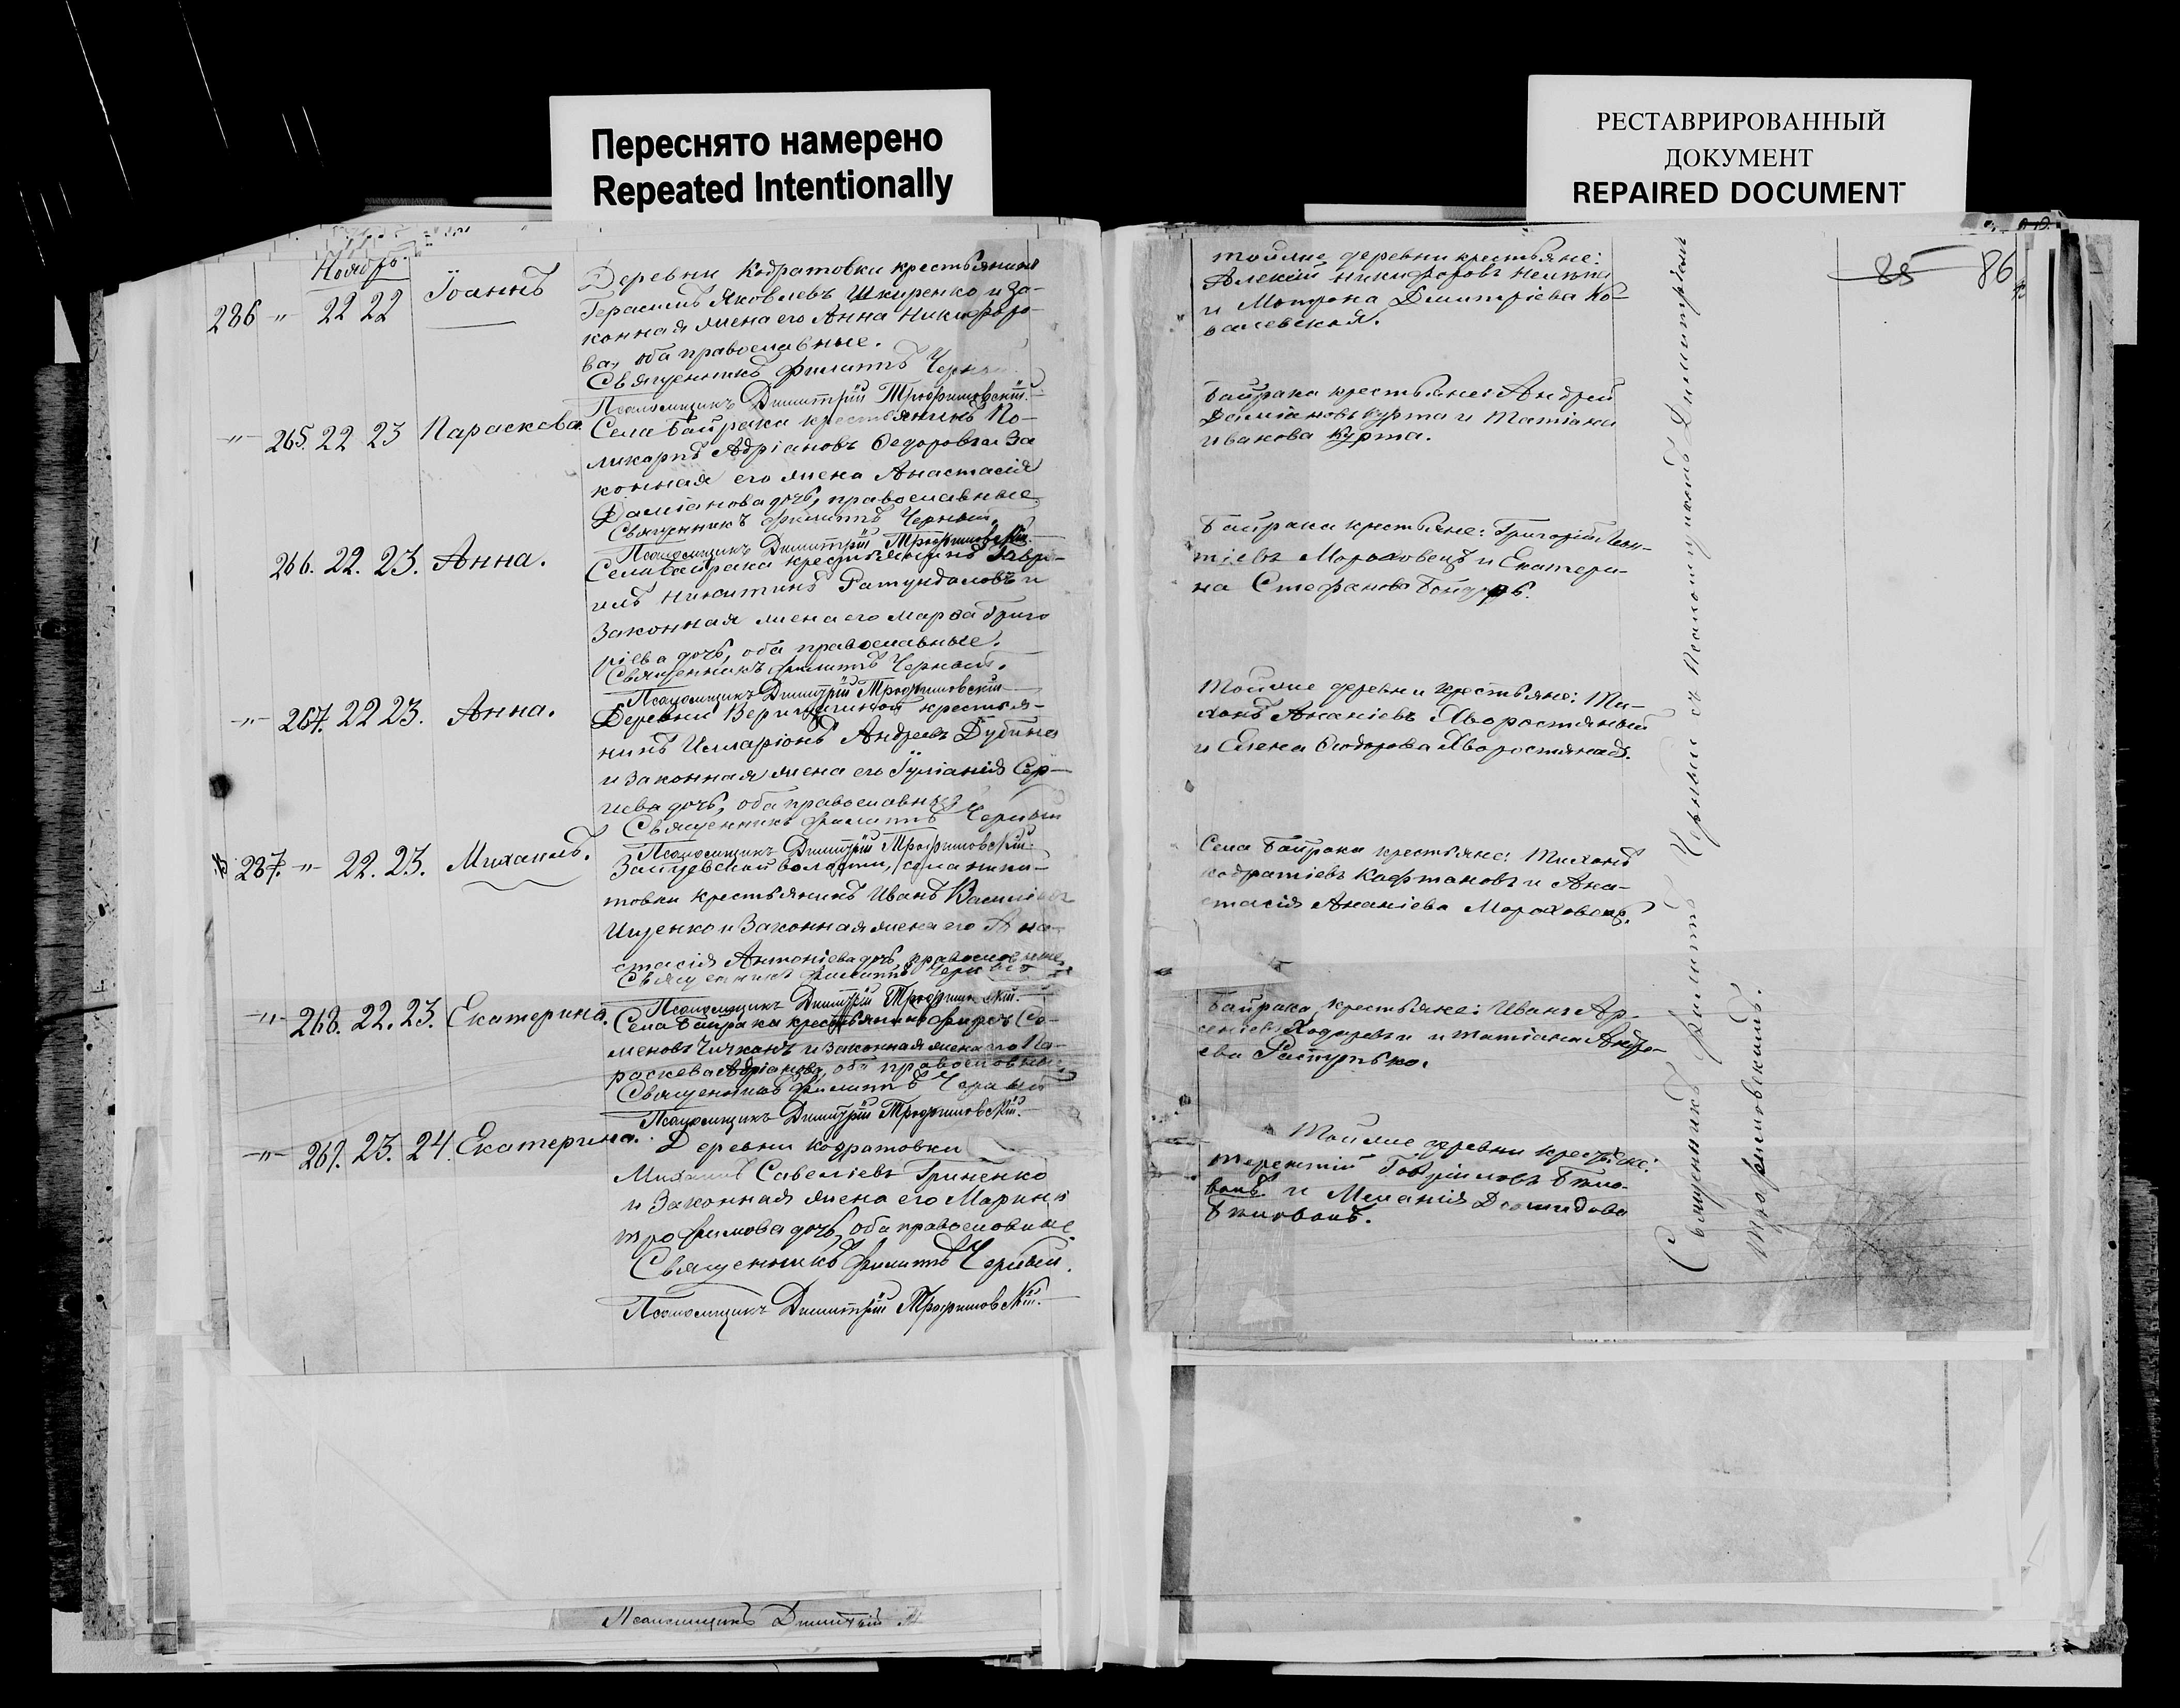 Переснято намерено
Repeated Intentionally
РЕСТАВРИРОВАННЫЙ
ДОКУМЕНТ
REPAIRED DOCUMENT
Ноябрь.
286 -"- 22 22 Іоаннъ
Деревни Кодратовки крестьянинъ
Герасимъ Яковлевъ Шкиренко и за-
конная жена его Анна Никифоро-
ва, оба православные.
Священникъ Филиппъ Черный
Псаломщикъ Димитрій Трофимовскій.
-"- 265. 22 23 Параскева.
Села Байрака крестьянинъ По-
ликарпъ Адріановъ Федоровъ и за
конная его жена Анастасія
Даміанова дочь, православные.
Священникъ Филиппъ Черный.
Псаломщикъ Димитрій Трофимовскій
266. 22. 23. Анна.
Села Байрака крестьянинъ Гаври-
илъ Никитинъ и
законная жена его Марфа Григо
ріева дочь, оба православные.
Священникъ Филиппъ Черный.
Псаломщикъ Димитрій Трофимовскій
-"- 267. 22 23. Анна.
Деревни крестья-
нинъ Илларіонъ Андреевъ Дубина
и законная жена его Іуліанія Сер-
гиева дочь, оба православные
Священникъ Филиппъ Черный
Псаломщикъ Димитрій Трофимовскій.
287. -"- 22. 23. Михаилъ.
Зайцевской волости, села Ники-
товки крестьянинъ Иванъ Василіевъ
Ищенко и законная жена его Ана-
стасія Антоніева дочь, православные
Священникъ Филиппъ Черный
Псаломщикъ Димитрій Трофимовскій.
-"- 268. 22. 23. Екатерина.
Села Байрака крестьянинъ Фирсъ Се-
меновъ Чичканъ и законная жена его Па-
раскева Адріанова, оба православные
Священникъ Филиппъ Черный
Псаломщикъ Димитрій Трофимовскій.
-"- 269. 23. 24. Екатерина.
Деревни Кодратовки
Михаилъ Савеліевъ Гриненко
и законная жена его Марина
Трофимова дочь, оба православные.
Священникъ Филиппъ Черный.
Псаломщикъ Димитрій Трофимовскій.
Псаломщикъ Димитрій
85 86
Тойже деревни крестьяне:
Алексій Никифоровъ
и Матрона Димитріева Ко-
валевская.
Байрака крестьяне: Андрей
Даміановъ Курта и Татіана
Иванова Курта.
Байрака крестьяне: Григорій Леон-
тіевъ Мораховецъ и Екатери-
на Стефанова Бондарь.
Тойже деревни крестьяне: Ти-
хонъ Ананіевъ Хворостяный
и Елена Феодорова Хворостяная.
Села Байрака крестьяне: Тихонъ
Кодратіевъ Кафтановъ и Ана-
стасія Ананіева Мораховецъ.
Байрака, крестьяне: Иванъ Ар-
сеніевъ и Татіана Андре-
ева
Тойже деревни крестьяне:
Терентій Гавріиловъ
и Меланія Деомидова
Священникъ Филиппъ Черный съ Псаломщикомъ Димитріемъ
Трофимовскимъ.